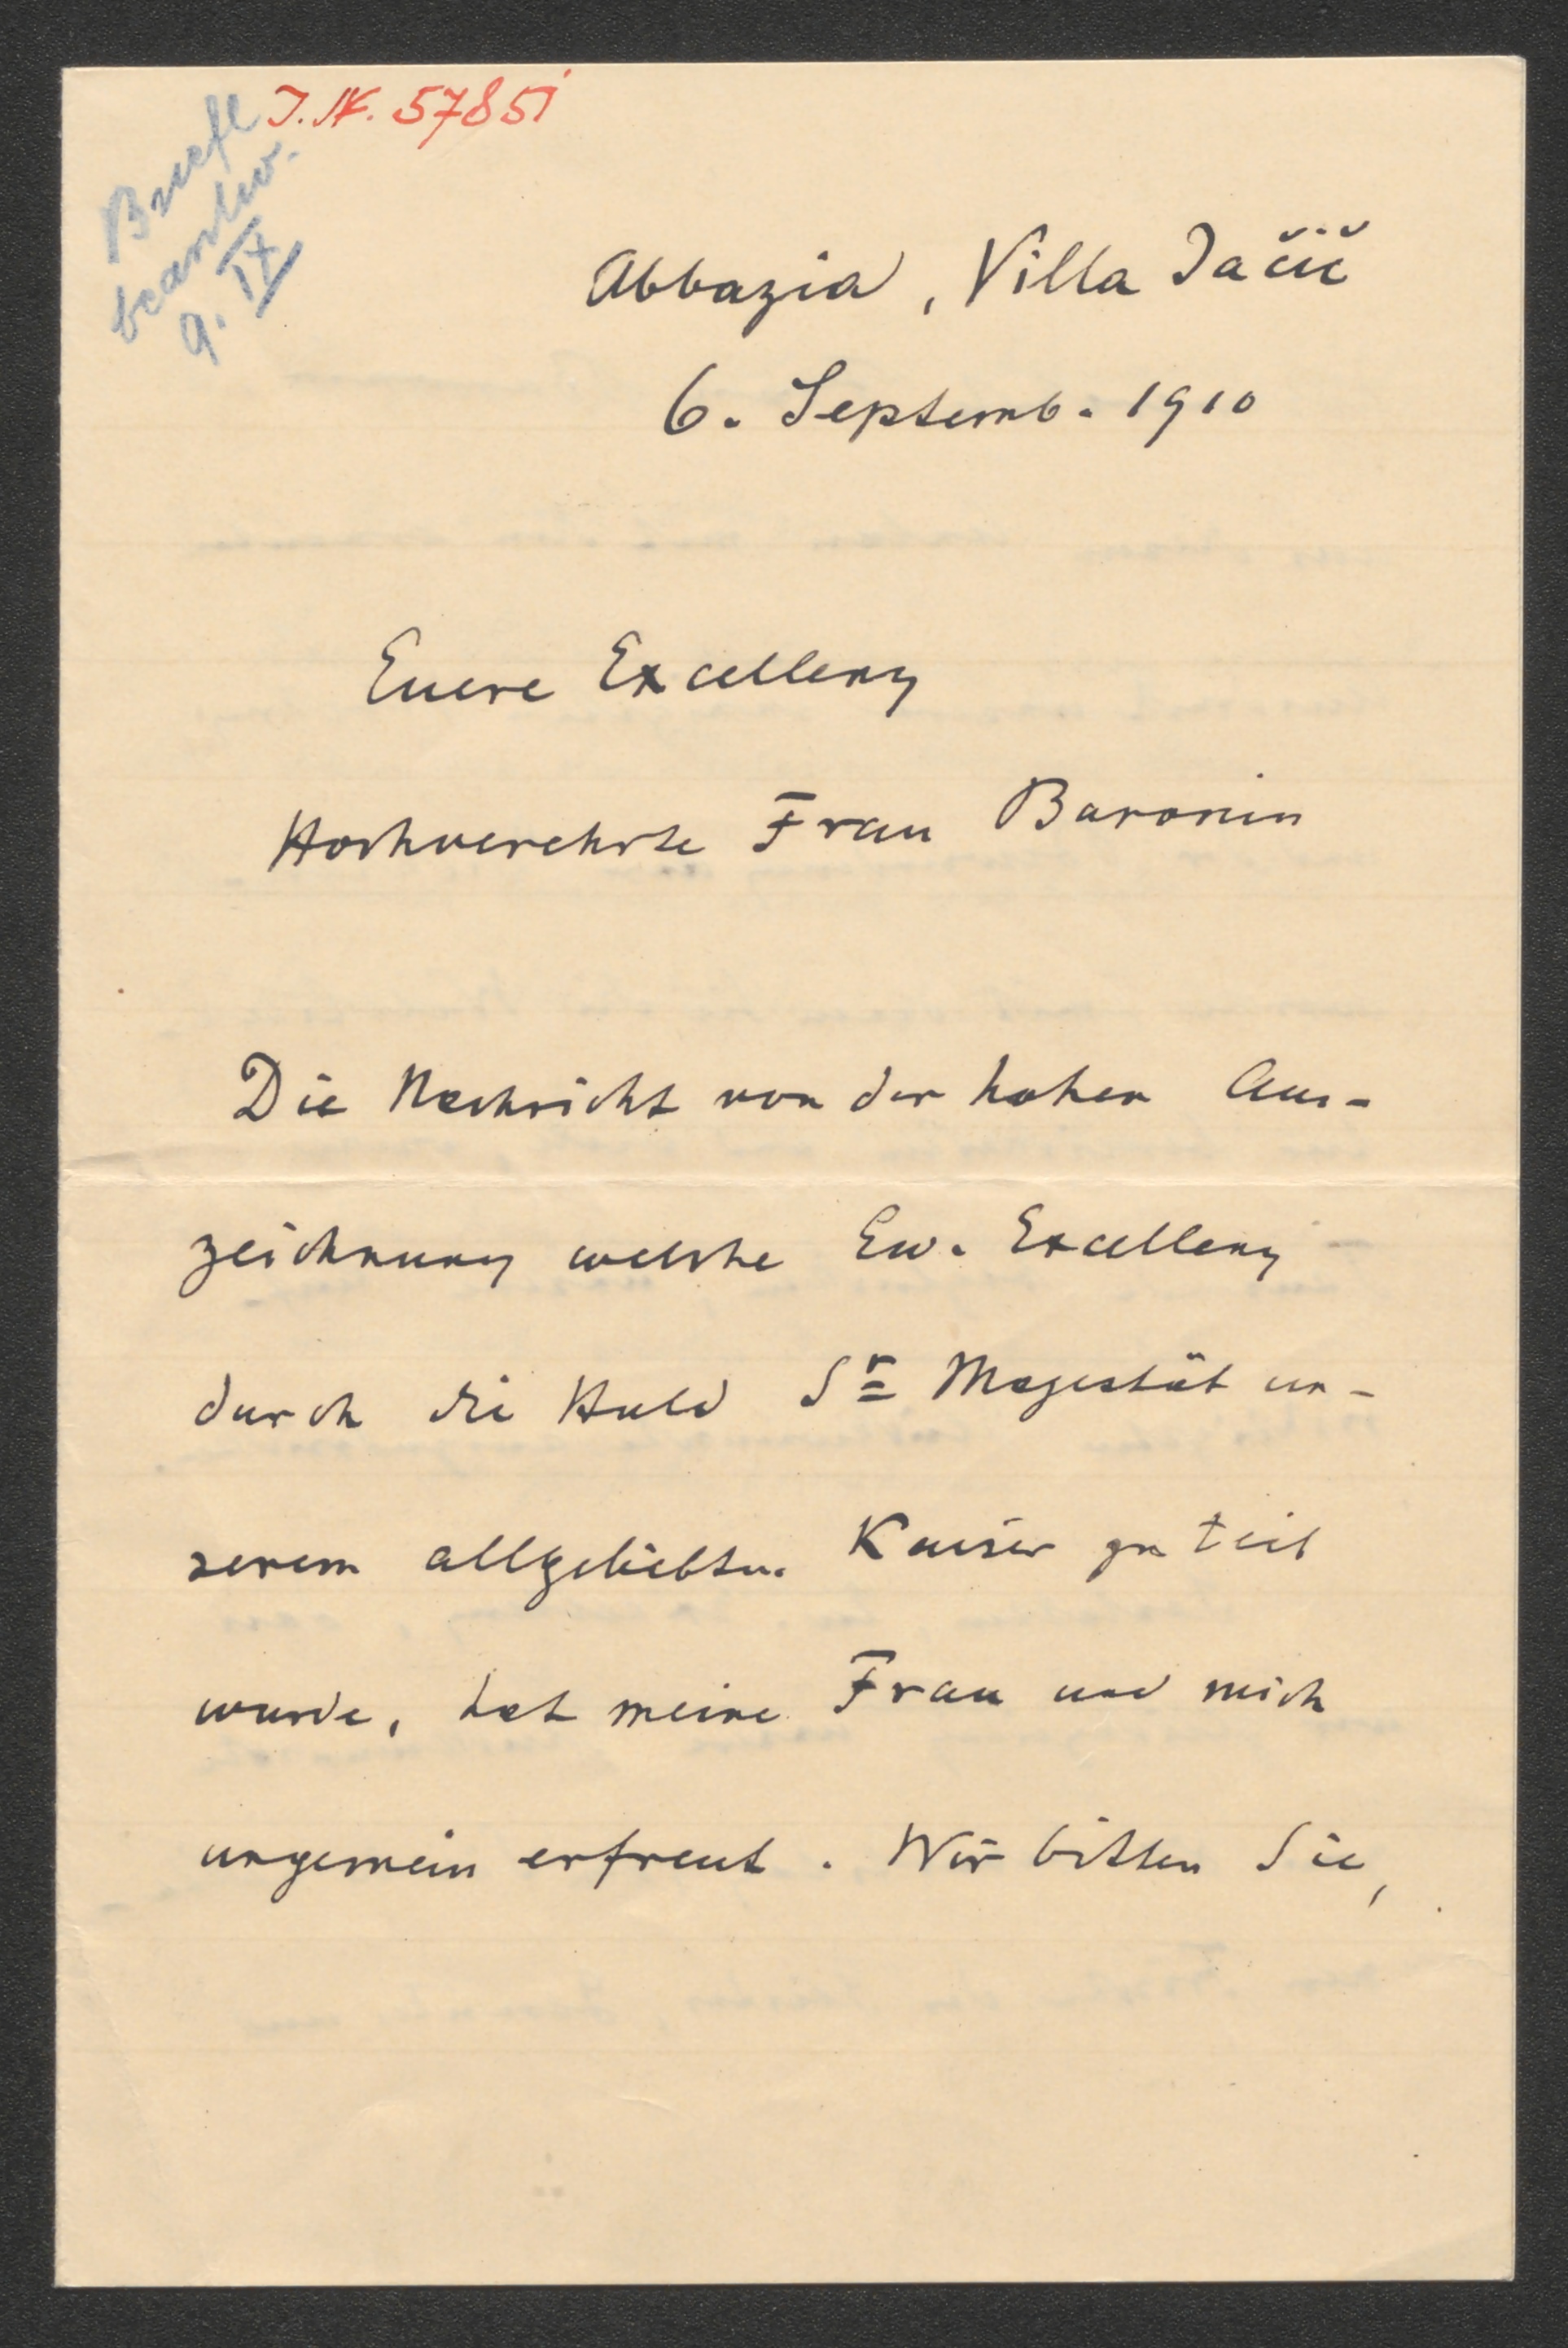 J.N. 57851
Briefl
beantw.
9. IX
Abbazia, Villa Jačić
6. Septemb. 1910
Euere Excellenz
Hochverehrte Frau Baronin
Die Nachricht von der hohen Aus-
zeichnung welche Ew. Excellenz
durch die Huld Sr Majestät un-
serem allgeliebten Kaiser zu teil
wurde, hat meine Frau und mich
ungemein erfreut. Wir bitten Sie,